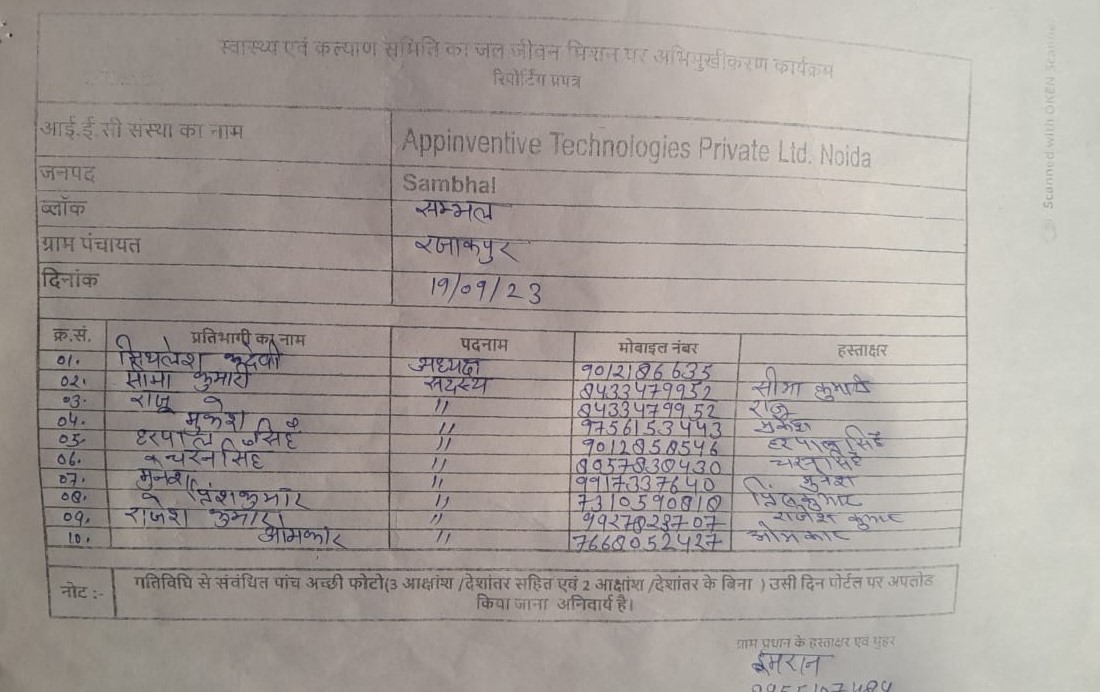 स्वास्थ्य एवं कल्याण समिति का जल जीवन मिशन पर अभिमुखीकरण कार्यक्रम
रिपोर्टिंग प्रपत्र
आई.ई.सी संस्था का नाम Appinventive Technologies Private Ltd. Noida
जनपद Sambhal
ब्लॉक सम्भल
ग्राम पंचायत रजाकपुर
दिनांक 19/09/23
क्र.सं. प्रतिभागी का नाम पदनाम मोबाइल नंबर हस्ताक्षर
01. अध्यक्ष 9012186635
02. सीमा कुमारी सदस्य 8433479952 सीमा कुमारी
03. राजू " 8433479952 राजू
04. मुकेश " 9756153443 मुकेश
05. हरपाल सिंह " 9012858546 हरपाल सिंह
06. चरन सिंह " 8957830430 चरन सिंह
07. मुनेश " 9917337640 मुनेश
08. प्रिंशकुमार " 7310590818
09. राजेश कुमार " राजेश कुमार
10. ओमकार " 7668052427 ओमकार
नोट :- गतिविधि से संबंधित पांच अच्छी फोटो(3 आक्षांश /देशांतर सहित एवं 2 आक्षांश /देशांतर के बिना ) उसी दिन पोर्टल पर अपलोड
किया जाना अनिवार्य है।
ग्राम प्रधान के हस्ताक्षर एवं मुहर
इमरान
Scanned with OKEN Scanner